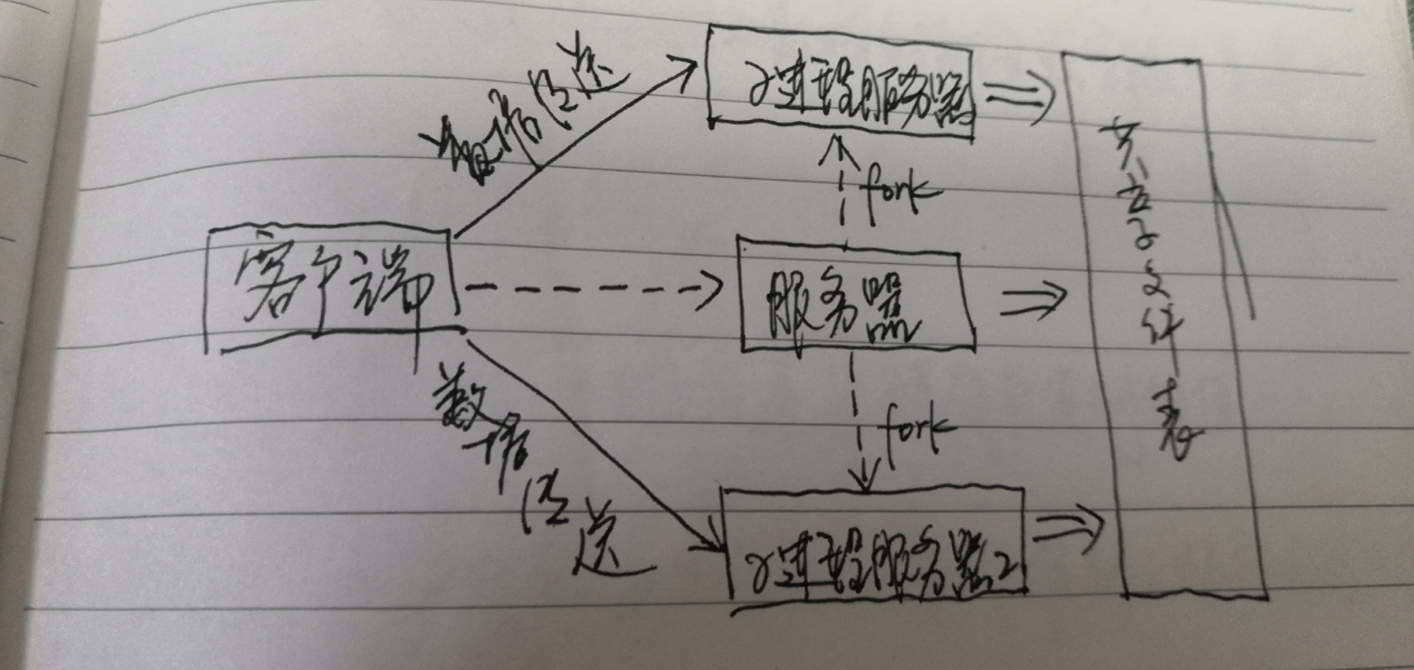 数据传送
子进程服务器
fork
客户端
服务器
fork
数据传送
子进程服务器2
共享文件表